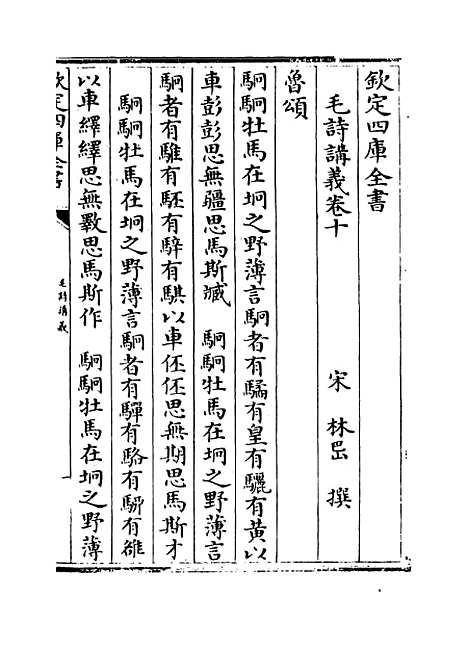 欽定四庫全書
毛詩講義卷十
宋 林岊 撰
魯頌
駉駉牡馬在坰之野薄言駉者有驈有皇有驪有黃以
車彭彭思無疆思馬斯臧 駉駉牡馬在坰之野薄言
駉者有騅有駓有騂有騏以車伾伾思無期思馬斯才
駉駉牡馬在坰之野薄言駉者有驒有駱有駵有雒
以車繹繹思無斁思馬斯作 駉駉牡馬在坰之野薄
欽定四庫全書
毛詩講義